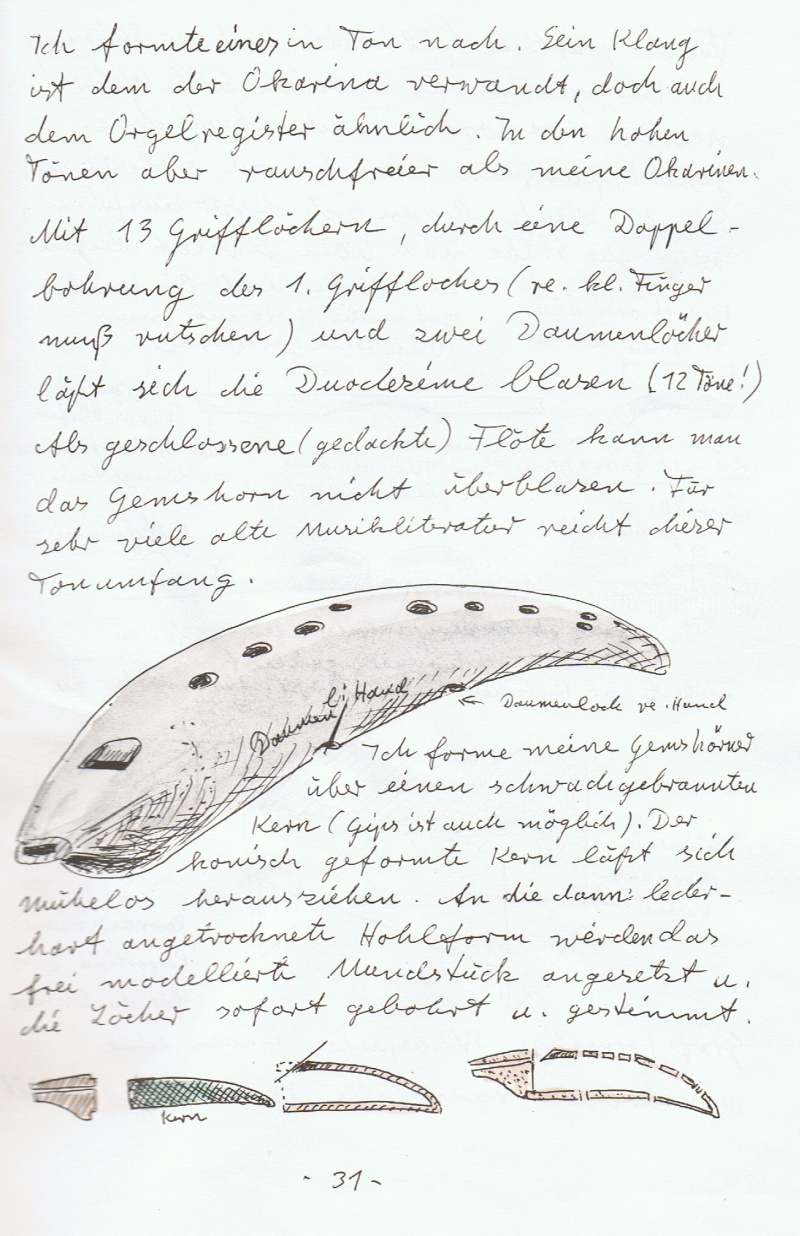 Ich formte eines in Ton nach. Sein Klang
ist dem der Okarina verwandt, doch auch
dem Orgelregister ähnlich. In den hohen
Tönen aber rauschfreier als meine Okarinen.
Mit 13 Grifflöchern, durch eine Doppel-
bohrung des 1. Griffloches (re. kl. Finger
muß rutschen) und zwei Daumenlöcher
läßt sich die Duodezime blasen (12 Töne!)
Als geschlossene (gedackte) Flöte kann man
das Gemshorn nicht überblasen. Für
sehr viele alte Musikliteratur reicht dieser
Tonumfang.
Daumen li. Hand
Daumenloch re. Hand
Ich forme meine Gemshörner
über einen schwachgebrannten
Kern (Gips ist auch möglich). Der
konisch geformte Kern läßt sich
mühelos herausziehen. An die dann leder-
hart angetrocknete Hohlform werden das
frei modellierte Mundstück angesetzt u.
die Löcher sofort gebohrt u. gestimmt.
Kern
- 31 -